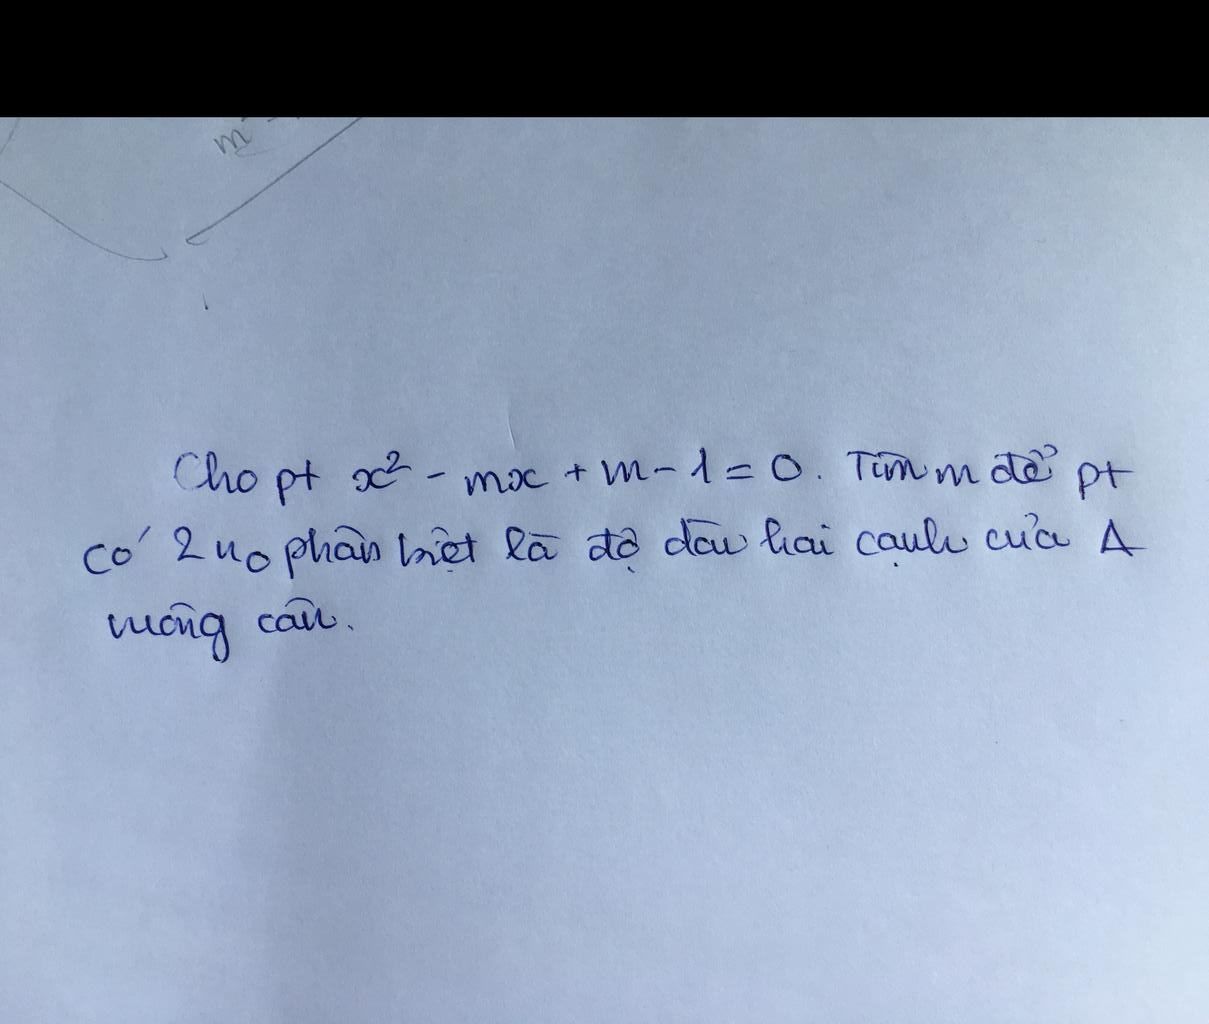 Cho pt x² - mx + m - 1 = 0. Tìm m để pt
có 2 no phân biệt là độ dài hai cạnh của Δ
vuông cân.